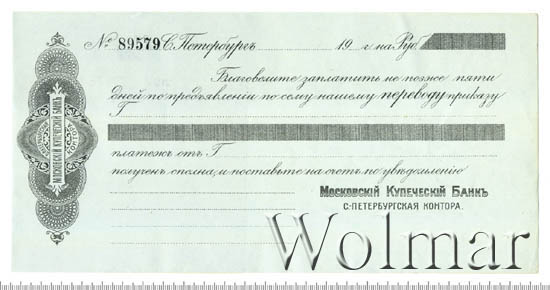 № 89579 С. Петербургъ 19 г. на Руб.
Благоволите заплатить не позже пяти
дней по предъявленіи по сему нашему переводу приказу
Г
платежъ отъ Г
получен сполна, и поставьте на счетъ по увѣдомленію
Московскій Купеческій Банкъ
С-ПЕТЕРБУРГСКАЯ КОНТОРА.
МОСКОВСКІЙ КУПЕЧЕСКІЙ БАНКЪ
Wolmar